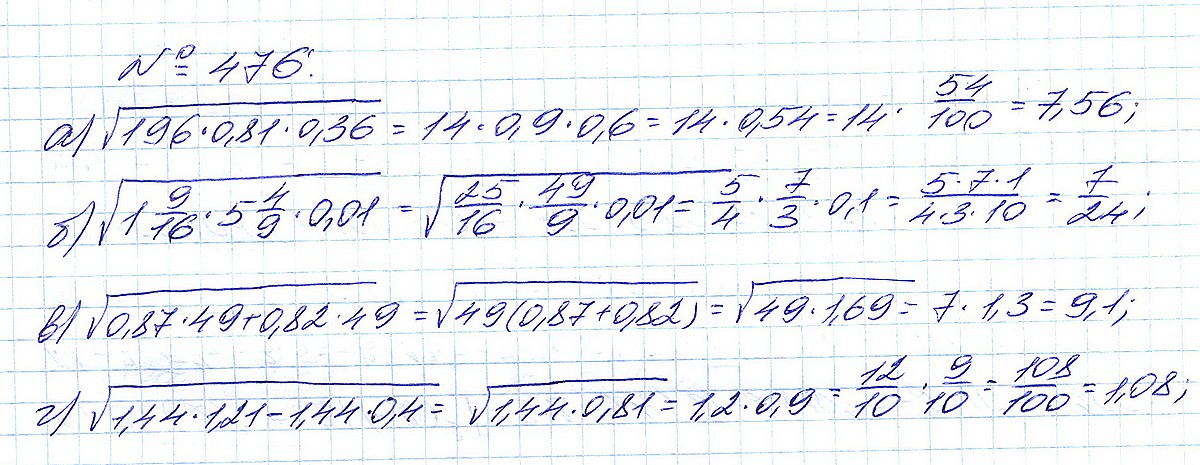 № 476.
а) √196·0,81·0,36 = 14·0,9·0,6 = 14·0,54 = 14· 54/100 = 7,56;
б) √1 9/16 · 5 4/9 · 0,01 = √25/16 · 49/9 · 0,01 = 5/4 · 7/3 · 0,1 = 5·7·1/4·3·10 = 7/24;
в) √0,87·49+0,82·49 = √49(0,87+0,82) = √49·1,69 = 7·1,3 = 9,1;
г) √1,44·1,21-1,44·0,4 = √1,44·0,81 = 1,2·0,9 = 12/10 · 9/10 = 108/100 = 1,08;